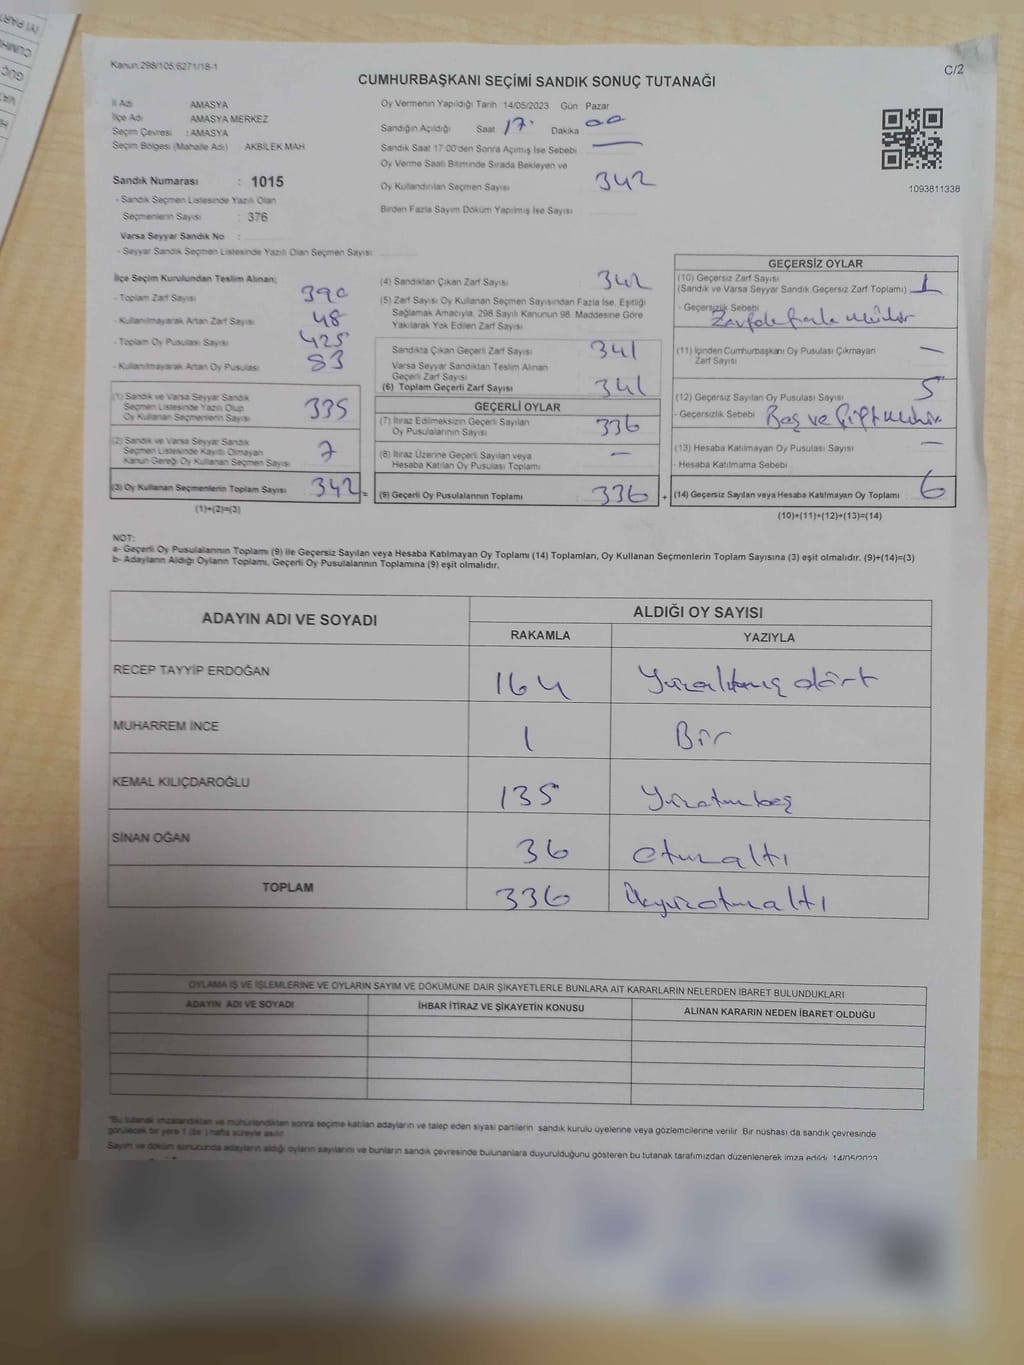 Kanun.298/105.6271/18-1
C/2
CUMHURBAŞKANI SEÇİMİ SANDIK SONUÇ TUTANAĞI
İl Adı : AMASYA
İlçe Adı : AMASYA MERKEZ
Seçim Çevresi : AMASYA
Seçim Bölgesi (Mahalle Adı) AKBİLEK MAH
Sandık Numarası : 1015
- Sandık Seçmen Listesinde Yazılı Olan
Seçmenlerin Sayısı : 376
Varsa Seyyar Sandık No :
- Seyyar Sandık Seçmen Listesinde Yazılı Olan Seçmen Sayısı :
Oy Vermenin Yapıldığı Tarih 14/05/2023 Gün Pazar
Sandığın Açıldığı Saat 17. Dakika 00
Sandık Saat 17.00'den Sonra Açımış İse Sebebi —
Oy Verme Saati Bitiminde Sırada Bekleyen ve
Oy Kullandırılan Seçmen Sayısı 342
Birden Fazla Sayım Döküm Yapılmış İse Sayısı
1093811338
İlçe Seçim Kurulundan Teslim Alınan;
- Toplam Zarf Sayısı 390
- Kullanılmayarak Artan Zarf Sayısı 48
- Toplam Oy Pusulası Sayısı 425
- Kullanılmayarak Artan Oy Pusulası 83
(1) Sandık ve Varsa Seyyar Sandık
Seçmen Listesinde Yazılı Olup
Oy Kullanan Seçmenlerin Sayısı 335
(2) Sandık ve Varsa Seyyar Sandık
Seçmen Listesinde Kayıtlı Olmayan
Kanun Gereği Oy Kullanan Seçmen Sayısı 7
(3) Oy Kullanan Seçmenlerin Toplam Sayısı 342 =
(1)+(2)=(3)
(4) Sandıktan Çıkan Zarf Sayısı : 342
(5) Zarf Sayısı Oy Kullanan Seçmen Sayısından Fazla İse, Eşitliği
Sağlamak Amacıyla, 298 Sayılı Kanunun 98. Maddesine Göre
Yakılarak Yok Edilen Zarf Sayısı
Sandıkta Çıkan Geçerli Zarf Sayısı : 341
Varsa Seyyar Sandıktan Teslim Alınan
Geçerli Zarf Sayısı
(6) Toplam Geçerli Zarf Sayısı : 341
GEÇERLİ OYLAR
(7) İtiraz Edilmeksizin Geçerli Sayılan
Oy Pusulalarının Sayısı 336
(8) İtiraz Üzerine Geçerli Sayılan veya
Hesaba Katılan Oy Pusulası Toplamı —
(9) Geçerli Oy Pusulalarının Toplamı : 336 +
GEÇERSİZ OYLAR
(10) Geçersiz Zarf Sayısı
(Sandık ve Varsa Seyyar Sandık Geçersiz Zarf Toplamı) 1
- Geçersizlik Sebebi
Zarfda fazla mühür
(11) İçinden Cumhurbaşkanı Oy Pusulası Çıkmayan
Zarf Sayısı —
(12) Geçersiz Sayılan Oy Pusulası Sayısı 5
- Geçersizlik Sebebi Boş ve Çift Mühür.
(13) Hesaba Katılmayan Oy Pusulası Sayısı —
- Hesaba Katılmama Sebebi
(14) Geçersiz Sayılan veya Hesaba Katılmayan Oy Toplamı : 6
(10)+(11)+(12)+(13)=(14)
NOT:
a- Geçerli Oy Pusulalarının Toplamı (9) ile Geçersiz Sayılan veya Hesaba Katılmayan Oy Toplamı (14) Toplamları, Oy Kullanan Seçmenlerin Toplam Sayısına (3) eşit olmalıdır. (9)+(14)=(3)
b- Adayların Aldığı Oyların Toplamı, Geçerli Oy Pusulalarının Toplamına (9) eşit olmalıdır.
ADAYIN ADI VE SOYADI
ALDIĞI OY SAYISI
RAKAMLA YAZIYLA
RECEP TAYYİP ERDOĞAN 164 Yüzaltmış dört
MUHARREM İNCE 1 Bir
KEMAL KILIÇDAROĞLU 135 Yüzotuzbeş
SİNAN OĞAN 36 Otuzaltı
TOPLAM 336 Üçyüzotuzaltı
OYLAMA İŞ VE İŞLEMLERİNE VE OYLARIN SAYIM VE DÖKÜMÜNE DAİR ŞİKAYETLERLE BUNLARA AİT KARARLARIN NELERDEN İBARET BULUNDUKLARI
ADAYIN ADI VE SOYADI İHBAR İTİRAZ VE ŞİKAYETİN KONUSU ALINAN KARARIN NEDEN İBARET OLDUĞU
"Bu tutanak imzalandıktan ve mühürlendikten sonra seçime katılan adayların ve talep eden siyasi partilerin sandık kurulu üyelerine veya gözlemcilerine verilir. Bir nüshası da sandık çevresinde
görülecek bir yere 1 (bir ) hafta süreyle asılır.
Sayım ve döküm sonucunda adayların aldığı oyların sayılarını ve bunların sandık çevresinde bulunanlara duyurulduğunu gösteren bu tutanak tarafımızdan düzenlenerek imza edildi. 14/05/2023